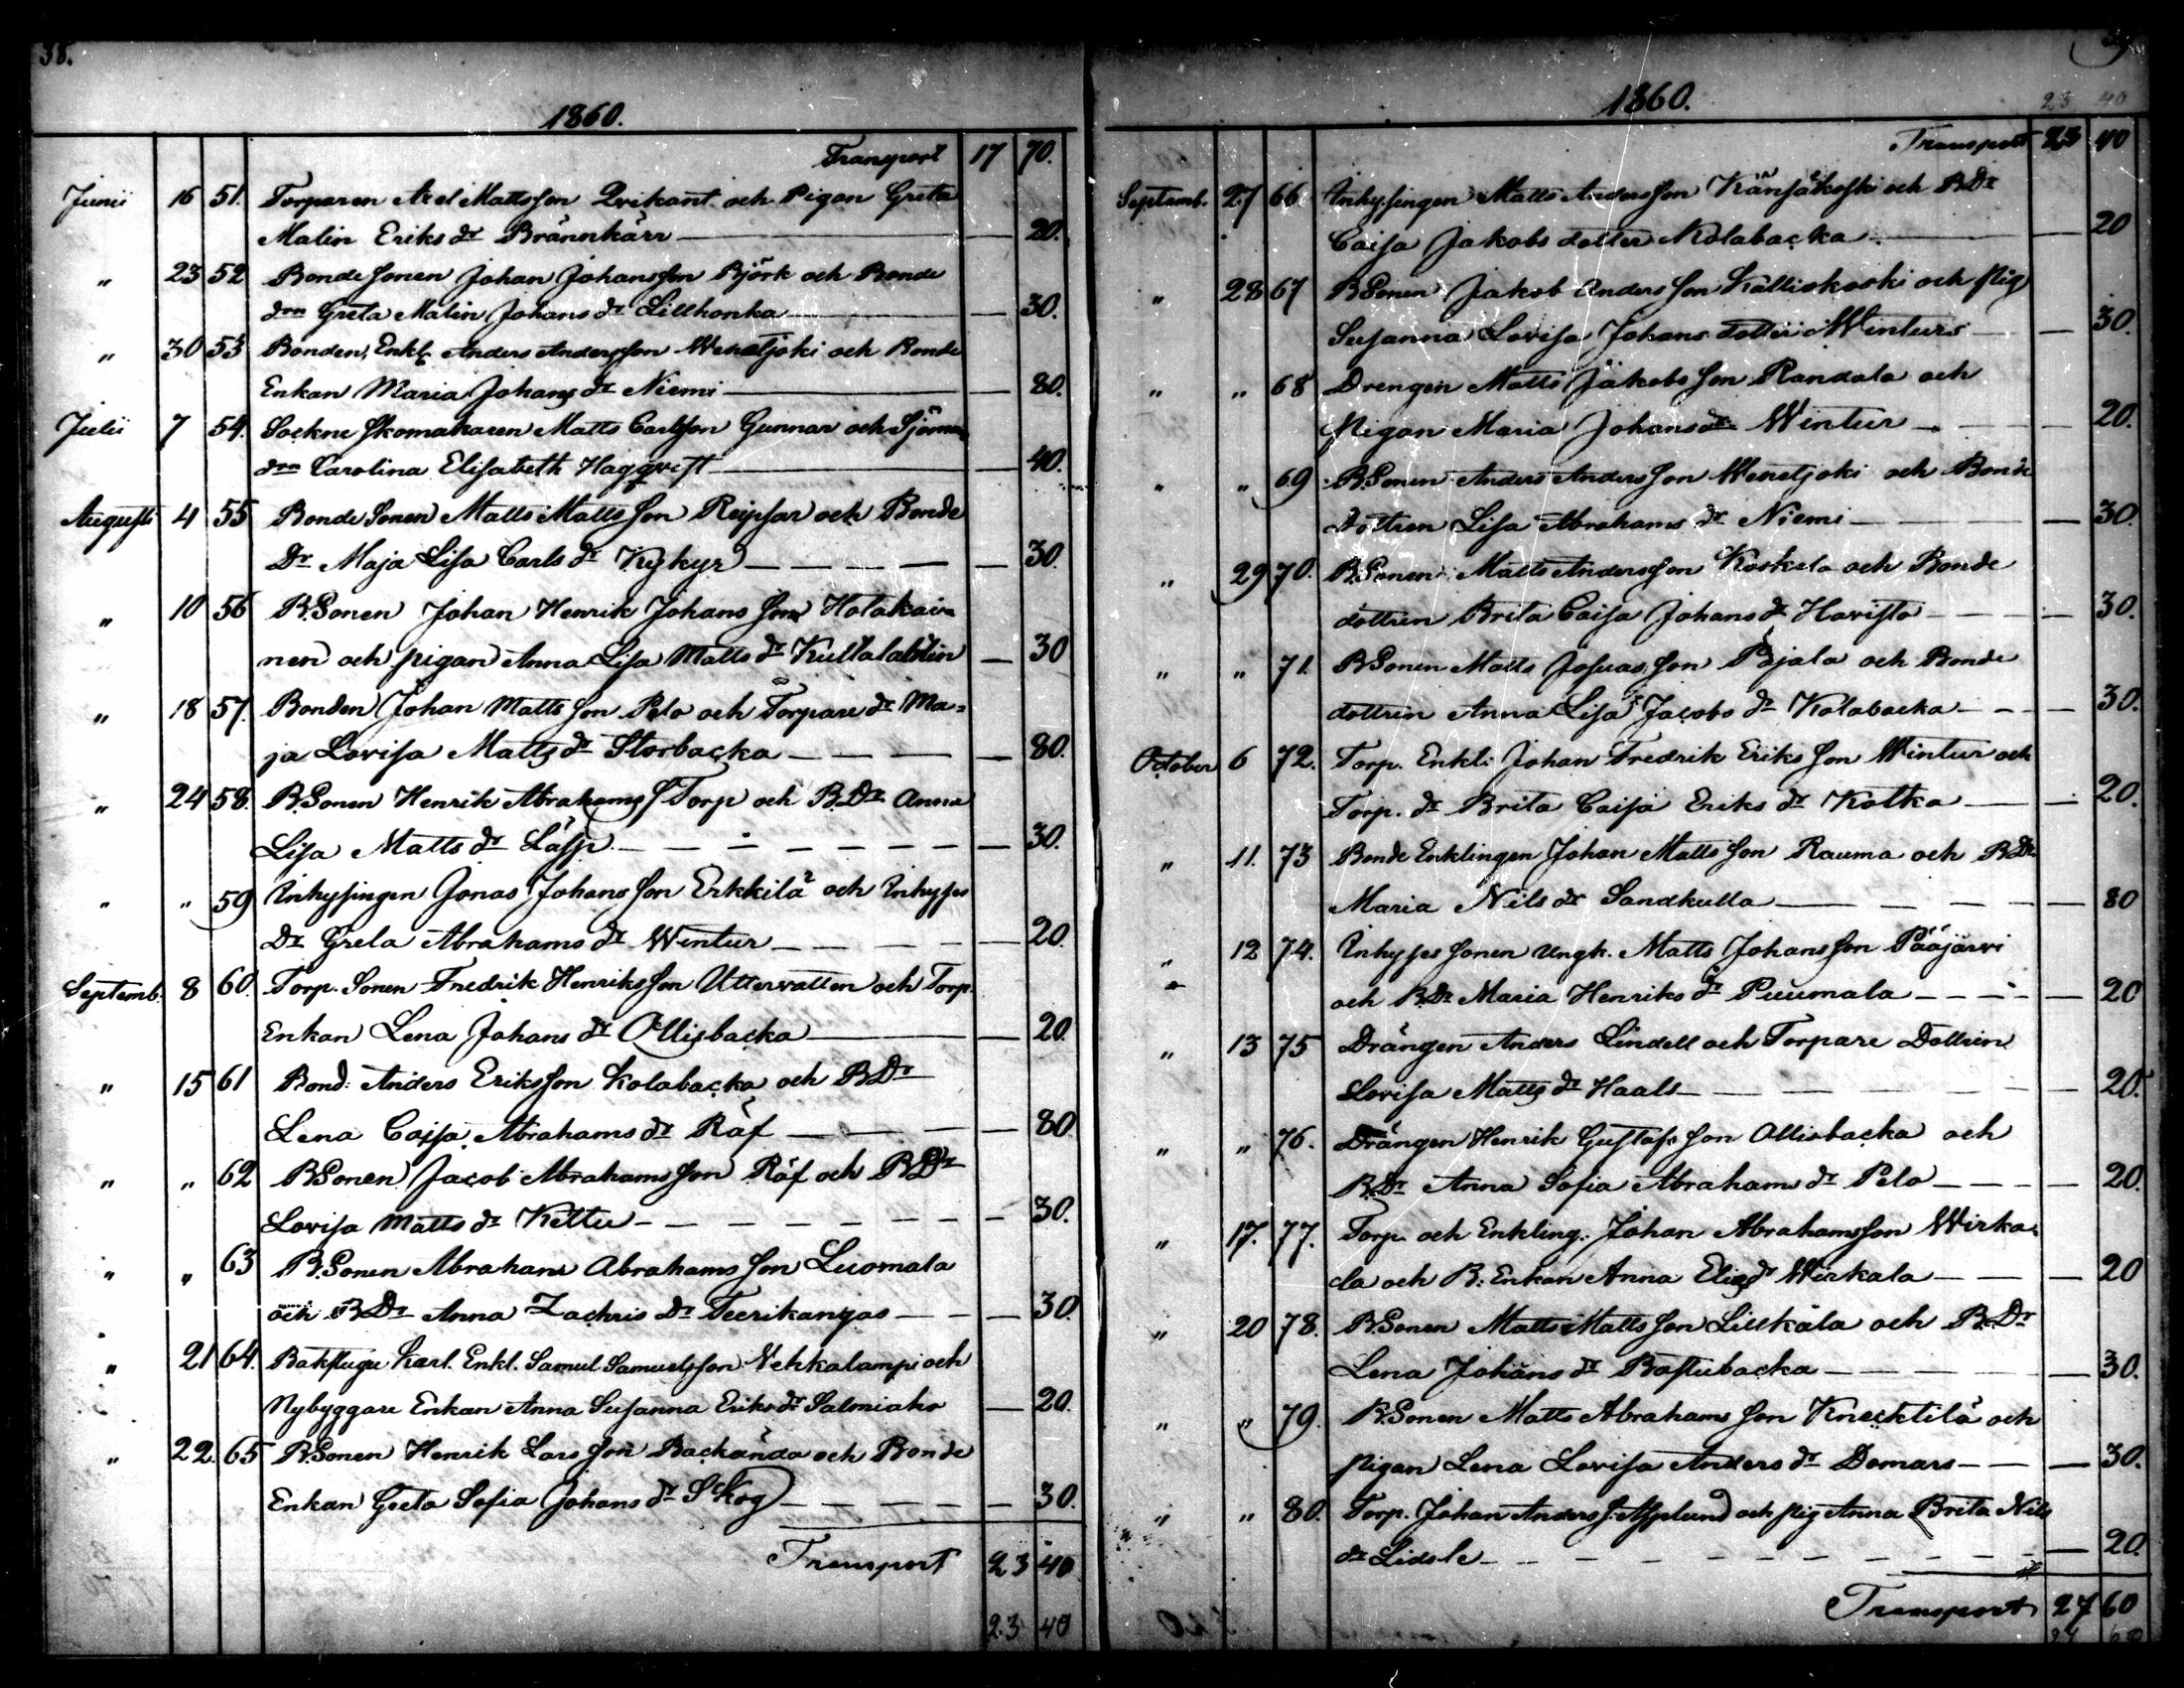 38.
1860.
Transport 17 70.
Junii 16 51. Torparen Axel Mattsson Qvikant och Pigan Greta
Malin Eriks dr Brännkärr — 20.
" 23 52 Bonde Sonen Johan Johansson Björk och Bonde
drn Greta Malin Johans dr Lillhonka — 30.
" 30 53 Bonden, Enkl. Anders Andersson Wenetjoki och Bonde
Enkan Maria Johans dr Niemi — 80.
Julii 7 54. Sockne Skomakaren Matts Carlsson Gunnar och Sjöman
drn Carolina Elisabeth Haggqvist — 40.
Augusti 4 55 Bonde Sonen Matts Mattsson Reipsar och Bonde
Dr Maja Lisa Carls dr Kykyr — 30.
" 10 56 B.Sonen Johan Henrik Johansson Hotakai=
nen och pigan Anna Lisa Matts dr Kultalahtin — 30
" 18 57. Bonden Johan Mattsson Pelo och Torpare dr Ma=
ja Lovisa Matts dr Storbacka — 80.
" 24 58. B.Sonen Henrik Abrahams Torp och B.Dr Anna
Lisa Matts dr Läsp — 30.
" " 59 Inhysingen Jonas Johansson Erkkilä och Inhyses
Dr Greta Abrahams dr Wintur — 20.
Septemb. 8 60. Torp. Sonen Fredrik Henriksson Uttervatten och Torp.
Enkan Lena Johans dr Ollisbacka — 20.
" 15 61 Bond: Anders Eriksson Kolabacka och BDr
Lena Cajsa Abrahams dr Räf — 80
" " 62 B.Sonen Jacob Abrahamsson Räf och BDr
Lovisa Matts dr Kettu — 30.
" " 63 B.Sonen Abraham Abrahamsson Luomala
och BDr Anna Zachris Dr Teerikangas — 30
" 21 64. Bakstugu Karl. Enkl. Samuel Samuelsson Vehkalampi och
Nybyggare Enkan Anna Susanna Eriks dr Salmiaho — 20.
" 22. 65 B.Sonen Henrik Larsson Backända och Bonde
Enkan Greta Sofia Johans dr Skog — 30.
Transport 23 40
23 40
39
1860.
23 40
Transport 23 40
Septemb. 27 66 Inhysingen Matts Andersson Känsäkoski och BDr
Caisa Jakobs dotter Kolabacka — 20
" 28 67 B.Sonen Jakob Andersson Källiokoski och pig
Susanna Lovisa Johans dotter Winturs — 30.
" " 68 Drengen Matts Jakobsson Randala och
Pigan Maria Johans dr Wintur — 20.
" " 69 B.Sonen Anders Andersson Wenetjoki och Bonde
dottren Lisa Abrahams dr Niemi — 30.
" 29 70. B.Sonen Matts Andersson Koskela och Bonde
dottren Brita Caisa Johans dr Havisto — 30.
" " 71. B.Sonen Matts Josuasson Pejala och Bonde
dottren Anna Lisa Jacobs dr Kolabacka — 30.
October 6 72. Torp. Enkl: Johan Fredrik Eriksson Wintur och
Torp. dr Brita Caisa Eriks dr Kotka — 20.
" 11. 73 Bonde Enklingen Johan Mattsson Rauma och BDr
Maria Nils dr Sandkulla — 80
" 12 74. Inhyses Sonen Ungk. Matts Johansson Pääjärvi
och BDr Maria Henriks dr Puumala — 20
" 13 75 Drängen Anders Lindell och Torpare Dottren
Lovisa Matts dr Haals — 20.
" " 76. Drängen Henrik Gustafsson Ollisbacka och
B.Dr Anna Sofia Abrahams dr Pelo — 20.
" 17. 77. Torp. och Enkling. Johan Abrahamsson Wirka=
la och B: Enkan Anna Elias dr Wirkala — 20
" 20 78. B.Sonen Matts Mattsson Lillkåla och B.Dr
Lena Johans dr Bastubacka — 30.
" " 79. B.Sonen Matts Abrahamsson Knecktilä och
pigan Lena Lovisa Anders dr Domars — 30.
" " 80. Torp. Johan Anders S. Asplund och pig Anna Brita Nils
dr Lidsle — 20.
Transport 27 60
27 60